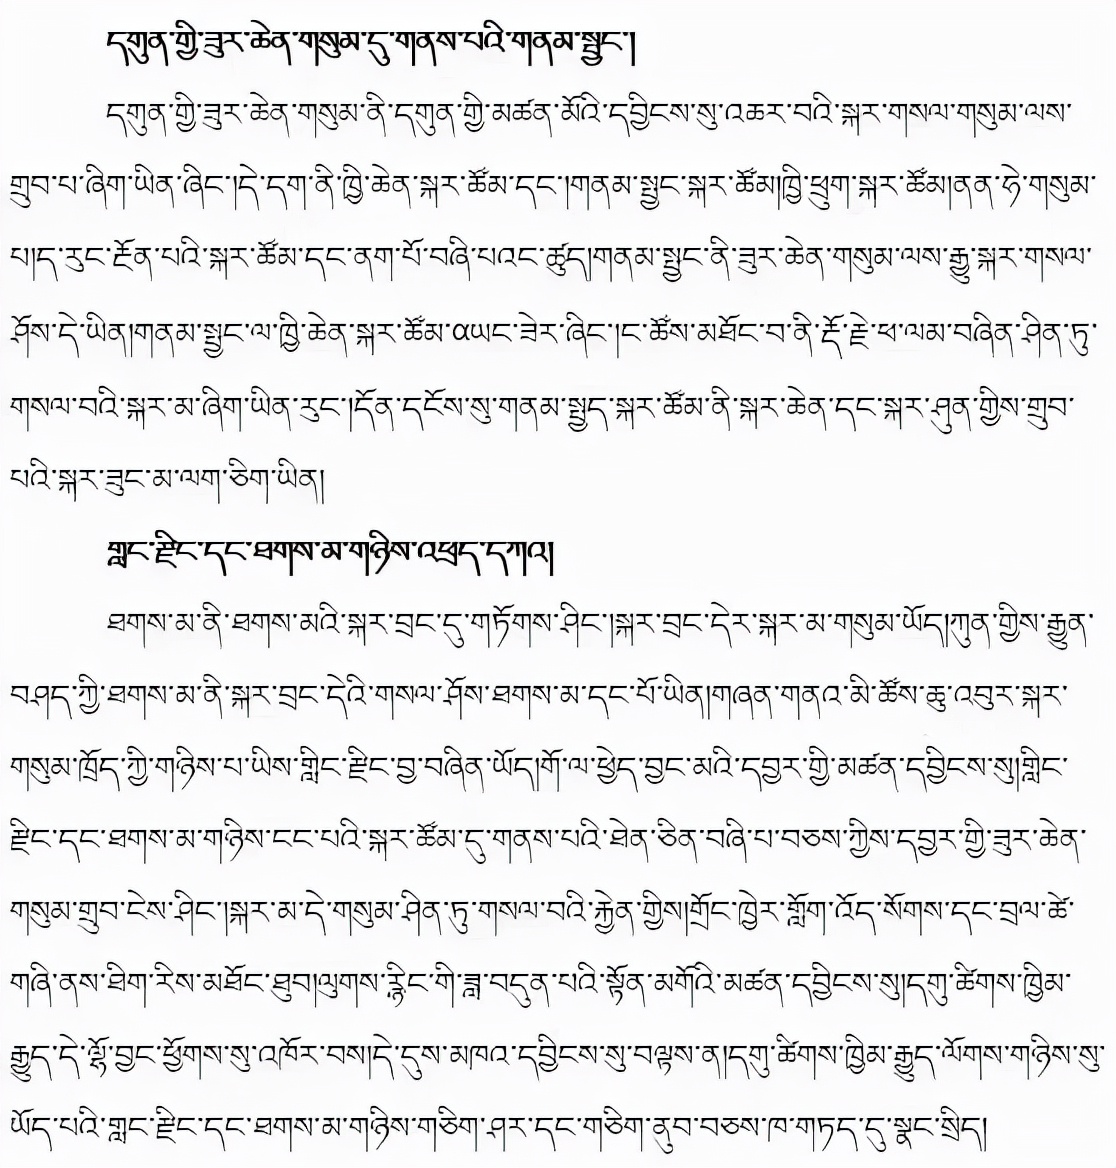 དགུན་གྱི་ཟུར་ཆེན་གསུམ་དུ་གནས་པའི་གནམ་སྤྱང་།
དགུན་གྱི་ཟུར་ཆེན་གསུམ་ནི་དགུན་གྱི་མཚན་མོའི་དབྱིངས་སུ་འཆར་བའི་སྐར་གསལ་གསུམ་ལས་
གྲུབ་པ་ཞིག་ཡིན་ཞིང་།དེ་དག་ནི་ཁྱི་ཆེན་སྐར་ཚོམ་དང་།གནམ་སྤྱང་སྐར་ཚོམ།ཁྱི་ཕྲུག་སྐར་ཚོམ།ནན་ཧེ་གསུམ་
པ།ད་རུང་རྔོན་པའི་སྐར་ཚོམ་དང་ནག་པོ་བཞི་པའང་ཚུད།གནམ་སྤྱང་ནི་ཟུར་ཆེན་གསུམ་ལས་རྒྱུ་སྐར་གསལ་
ཤོས་དེ་ཡིན།གནམ་སྤྱང་ལ་ཁྱི་ཆེན་སྐར་ཚོམ་αཡང་ཟེར་ཞིང་།ང་ཚོས་མཐོང་བ་ནི་རྡོ་རྗེ་ཕ་ལམ་བཞིན་ཤིན་ཏུ་
གསལ་བའི་སྐར་མ་ཞིག་ཡིན་རུང་།དོན་དངོས་སུ་གནམ་སྤྱད་སྐར་ཚོམ་ནི་སྐར་ཆེན་དང་སྐར་ཤུན་གྱིས་གྲུབ་
པའི་སྐར་ཟུང་མ་ལག་ཅིག་ཡིན།
གླང་རྫིང་དང་ཐགས་མ་གཉིས་འཕྲད་དཀའ།
ཐགས་མ་ནི་ཐགས་མའི་སྐར་བྲང་དུ་གཏོགས་ཤིང་།སྐར་བྲང་དེར་སྐར་མ་གསུམ་ཡོད།ཀུན་གྱིས་རྒྱུན་
བཤད་ཀྱི་ཐགས་མ་ནི་སྐར་བྲང་དེའི་གསལ་ཤོས་ཐགས་མ་དང་པོ་ཡིན།གཞན་གནའ་མི་ཚོས་ཆུ་འབུར་སྐར་
གསུམ་ཁྲོད་ཀྱི་གཉིས་པ་ཡིས་གླིང་རྫིང་བྱ་བཞིན་ཡོད།གོ་ལ་ཕྱེད་བྱང་མའི་དབྱར་གྱི་མཚན་དབྱིངས་སུ།གླིང་
རྫིང་དང་ཐགས་མ་གཉིས་ངང་པའི་སྐར་ཚོམ་དུ་གནས་པའི་ཐེན་ཅིན་བཞི་པ་བཅས་ཀྱིས་དབྱར་གྱི་ཟུར་ཆེན་
གསུམ་གྲུབ་ངེས་ཤིང་།སྐར་མ་དེ་གསུམ་ཤིན་ཏུ་གསལ་བའི་རྐྱེན་གྱིས།གྲོང་ཁྱེར་གློག་འོད་སོགས་དང་བྲལ་ཚེ་
གཞི་ནས་ཐིག་རིས་མཐོང་ཐུབ།ལུགས་རྙིང་གི་ཟླ་བདུན་པའི་སྟོན་མགོའི་མཚན་དབྱིངས་སུ།དགུ་ཚིགས་ཁྱིམ་
རྒྱུད་དེ་ལྷོ་བྱང་ཕྱོགས་སུ་འཁོར་བས།དེ་དུས་མཁའ་དབྱིངས་སུ་བལྟས་ན།དགུ་ཚིགས་ཁྱིམ་རྒྱུད་ལོགས་གཉིས་སུ་
ཡོད་པའི་གླང་རྫིང་དང་ཐགས་མ་གཉིས་གཅིག་ཤར་དང་གཅིག་ནུབ་བཅས་ཁ་གཏད་དུ་སྣང་སྲིད།